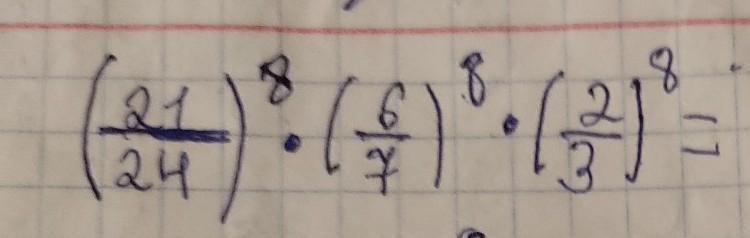 (21/24)⁸ · (6/7)⁸ · (2/3)⁸ =